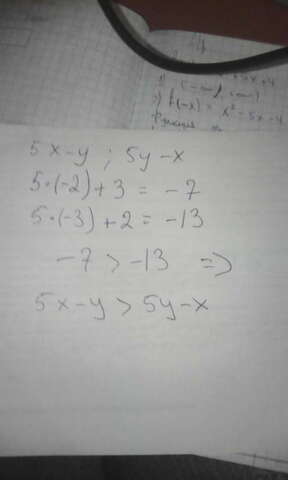 f(-x) = x² - 5x - 4
5x-y ; 5y-x
5·(-2)+3 = -7
5·(-3)+2 = -13
-7 > -13 =>
5x-y > 5y-x